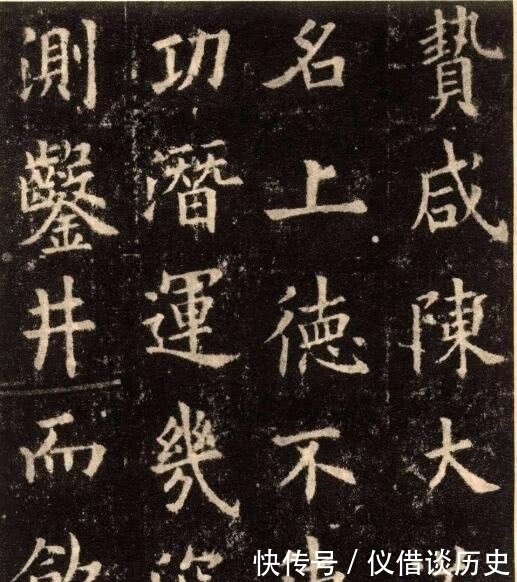 贄咸陳大
名上德不
功潛運幾
測鑿井而飲
快传号 / 仪借谈历史